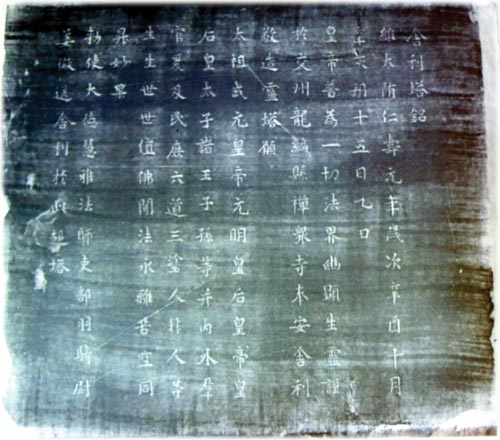 舍利塔銘
維大隋仁壽元年歲次辛酉十月
辛亥朔十五日乙丑
皇帝普為一切法界幽顯生靈謹
於交州龍編縣禪衆寺奉安舍利
敬造靈塔願
太祖武元皇帝元明皇后皇帝皇
后皇太子諸王子孫等并内外羣
官爰及民庶六道三塗人非人等
生生世世值佛聞法永離苦空同
昇妙果
勅使大德慧雅法師吏部羽騎尉
姜徽送舍利於此起塔